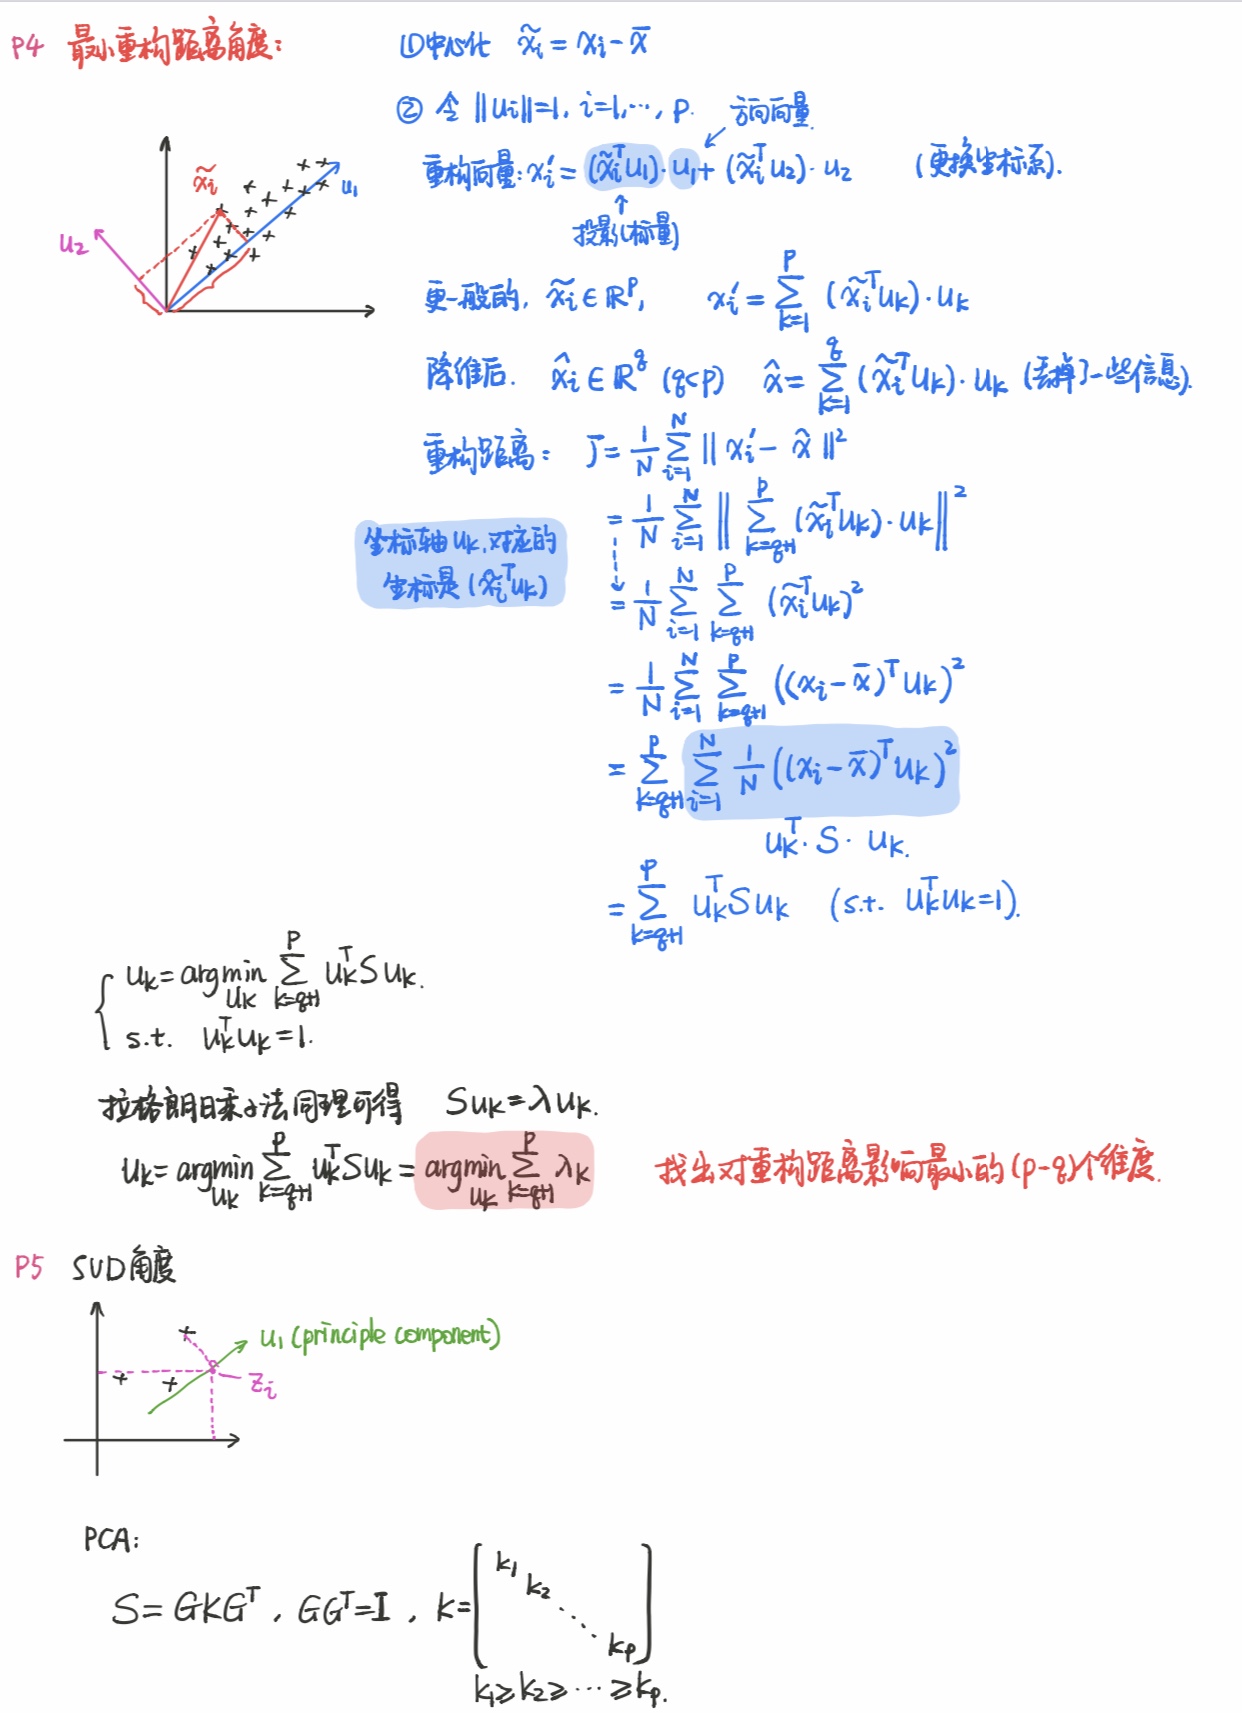 P4 最小重构距离角度:
①中心化 x̃ᵢ = xᵢ - x̄
② 令 ||uᵢ||=1, i=1,⋯, p.
方向向量.
重构向量: xᵢ′ = (x̃ᵢᵀu₁)·u₁ + (x̃ᵢᵀu₂)·u₂ (更换坐标系).
投影(标量)
x̃ᵢ
u₁
u₂
更一般的, x̃ᵢ ∈ ℝᵖ, xᵢ′ = ∑_{k=1}^{p} (x̃ᵢᵀuₖ)·uₖ
降维后. x̂ᵢ ∈ ℝ^q (q<p) x̂ = ∑_{k=1}^{q} (x̃ᵢᵀuₖ)·uₖ (丢掉了一些信息).
重构距离: J = 1/N ∑_{i=1}^{N} || xᵢ′ - x̂ ||²
= 1/N ∑_{i=1}^{N} || ∑_{k=q+1}^{p} (x̃ᵢᵀuₖ)·uₖ ||²
坐标轴 uₖ, 对应的
坐标是 (x̃ᵢᵀuₖ)
= 1/N ∑_{i=1}^{N} ∑_{k=q+1}^{p} (x̃ᵢᵀuₖ)²
= 1/N ∑_{i=1}^{N} ∑_{k=q+1}^{p} ((xᵢ - x̄)ᵀuₖ)²
= ∑_{k=q+1}^{p} ∑_{i=1}^{N} 1/N ((xᵢ - x̄)ᵀuₖ)²
uₖᵀ· S · uₖ.
= ∑_{k=q+1}^{p} uₖᵀSuₖ (s.t. uₖᵀuₖ=1).
{ uₖ = argmin_{uₖ} ∑_{k=q+1}^{p} uₖᵀSuₖ.
s.t. uₖᵀuₖ = 1.
拉格朗日乘子法同理可得 Suₖ = λuₖ.
uₖ = argmin_{uₖ} ∑_{k=q+1}^{p} uₖᵀSuₖ = argmin_{uₖ} ∑_{k=q+1}^{p} λₖ 找出对重构距离影响最小的(p-q)个维度.
P5 SVD角度
u₁ (principle component)
zᵢ
PCA:
S = GKGᵀ, GGᵀ=I, K = [k₁ k₂ ⋱ kₚ]
k₁ ≥ k₂ ≥ ⋯ ≥ kₚ.